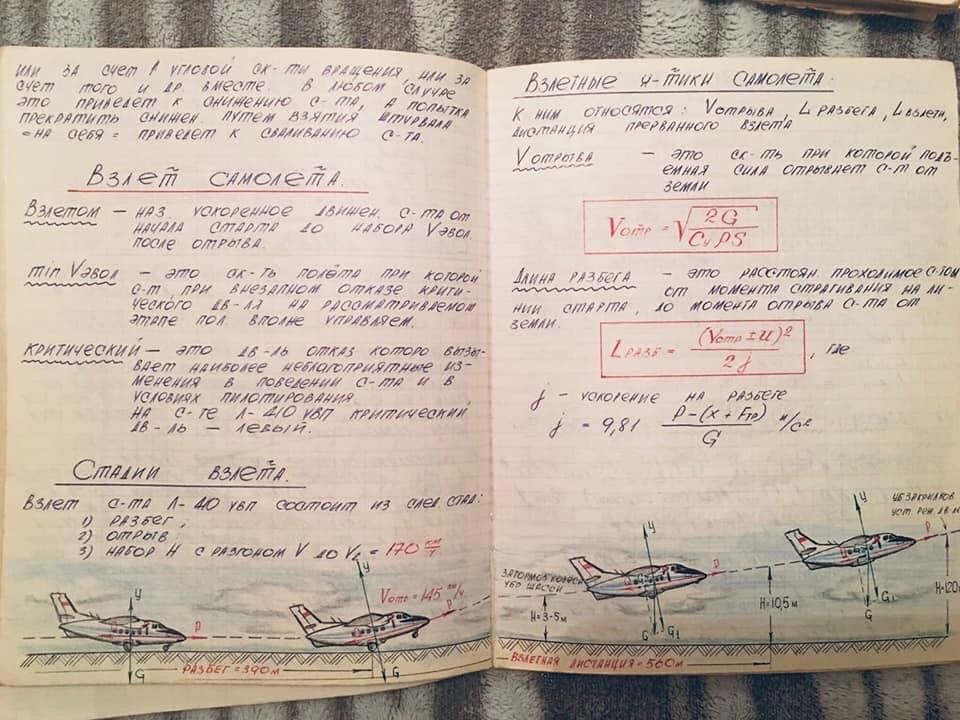 ИЛИ ЗА СЧЕТ ↑ УГЛОВОЙ СК-ТИ ВРАЩЕНИЯ, ИЛИ ЗА
СЧЕТ ТОГО И ДР. ВМЕСТЕ. В ЛЮБОМ СЛУЧАЕ
ЭТО ПРИВЕДЕТ К СНИЖЕНИЮ С-ТА, А ПОПЫТКА
ПРЕКРАТИТЬ СНИЖЕН. ПУТЕМ ВЗЯТИЯ ШТУРВАЛА
"НА СЕБЯ" ПРИВЕДЕТ К СВАЛИВАНИЮ С-ТА.
ВЗЛЕТ САМОЛЕТА.
ВЗЛЕТОМ — НАЗ. УСКОРЕННОЕ ДВИЖЕН. С-ТА ОТ
НАЧАЛА СТАРТА ДО НАБОРА VЭВОЛ.
ПОСЛЕ ОТРЫВА.
min VЭВОЛ — ЭТО СК-ТЬ ПОЛЁТА ПРИ КОТОРОЙ
С-Т ПРИ ВНЕЗАПНОМ ОТКАЗЕ КРИТИ-
ЧЕСКОГО ДВ-ЛЯ НА РАССМАТРИВАЕМОМ
ЭТАПЕ ПОЛ. ВПОЛНЕ УПРАВЛЯЕМ.
КРИТИЧЕСКИЙ — ЭТО ДВ-ЛЬ ОТКАЗ КОТОРО ВЫЗЫ-
ВАЕТ НАИБОЛЕЕ НЕБЛАГОПРИЯТНЫЕ ИЗ-
МЕНЕНИЯ В ПОВЕДЕНИИ С-ТА И В
УСЛОВИЯХ ПИЛОТИРОВАНИЯ.
НА С-ТЕ Л-410 УВП КРИТИЧЕСКИЙ
ДВ-ЛЬ — ЛЕВЫЙ.
СТАДИИ ВЗЛЕТА.
ВЗЛЕТ С-ТА Л-410 УВП СОСТОИТ ИЗ СЛЕД. СТАД:
1) РАЗБЕГ,
2) ОТРЫВ
3) НАБОР H С РАЗГОНОМ V ДО V2 = 170 КМ/Ч
У
P
G
У
Vотр = 145 КМ/Ч
P
G
РАЗБЕГ = 390 М
ВЗЛЕТНЫЕ Х-ТИКИ САМОЛЕТА:
К НИМ ОТНОСЯТСЯ: VОТРЫВА, L РАЗБЕГА, L ВЗЛЕТН,
ДИСТАНЦИЯ ПРЕРВАННОГО ВЗЛЕТА
V ОТРЫВА — ЭТО СК-ТЬ ПРИ КОТОРОЙ ПОДЪ-
ЕМНАЯ СИЛА ОТРЫВАЕТ С-Т ОТ
ЗЕМЛИ
Vотр = √(2G / CyPS)
ДЛИНА РАЗБЕГА — ЭТО РАССТОЯН ПРОХОДИМОЕ С-ТОМ
ОТ МОМЕНТА СТРАГИВАНИЯ НА ЛИ-
НИИ СТАРТА, ДО МОМЕНТА ОТРЫВА С-ТА ОТ
ЗЕМЛИ.
L РАЗБ = (Vотр ± U)² / 2j, ГДЕ
j - УСКОРЕНИЕ НА РАЗБЕГЕ
j = 9,81 P-(X + Fтр) / G М/С²
ЗАТОРМОЗ КОЛЕСА
УБР ШАССИ
H = 3-5 М
У
P
G G1
H = 10,5 М
УБ ЗАКРЫЛКОВ
УСТ. РЕЖ. ДВ
У
P
G G1
H = 120
ВЗЛЕТНАЯ ДИСТАНЦИЯ = 560 М